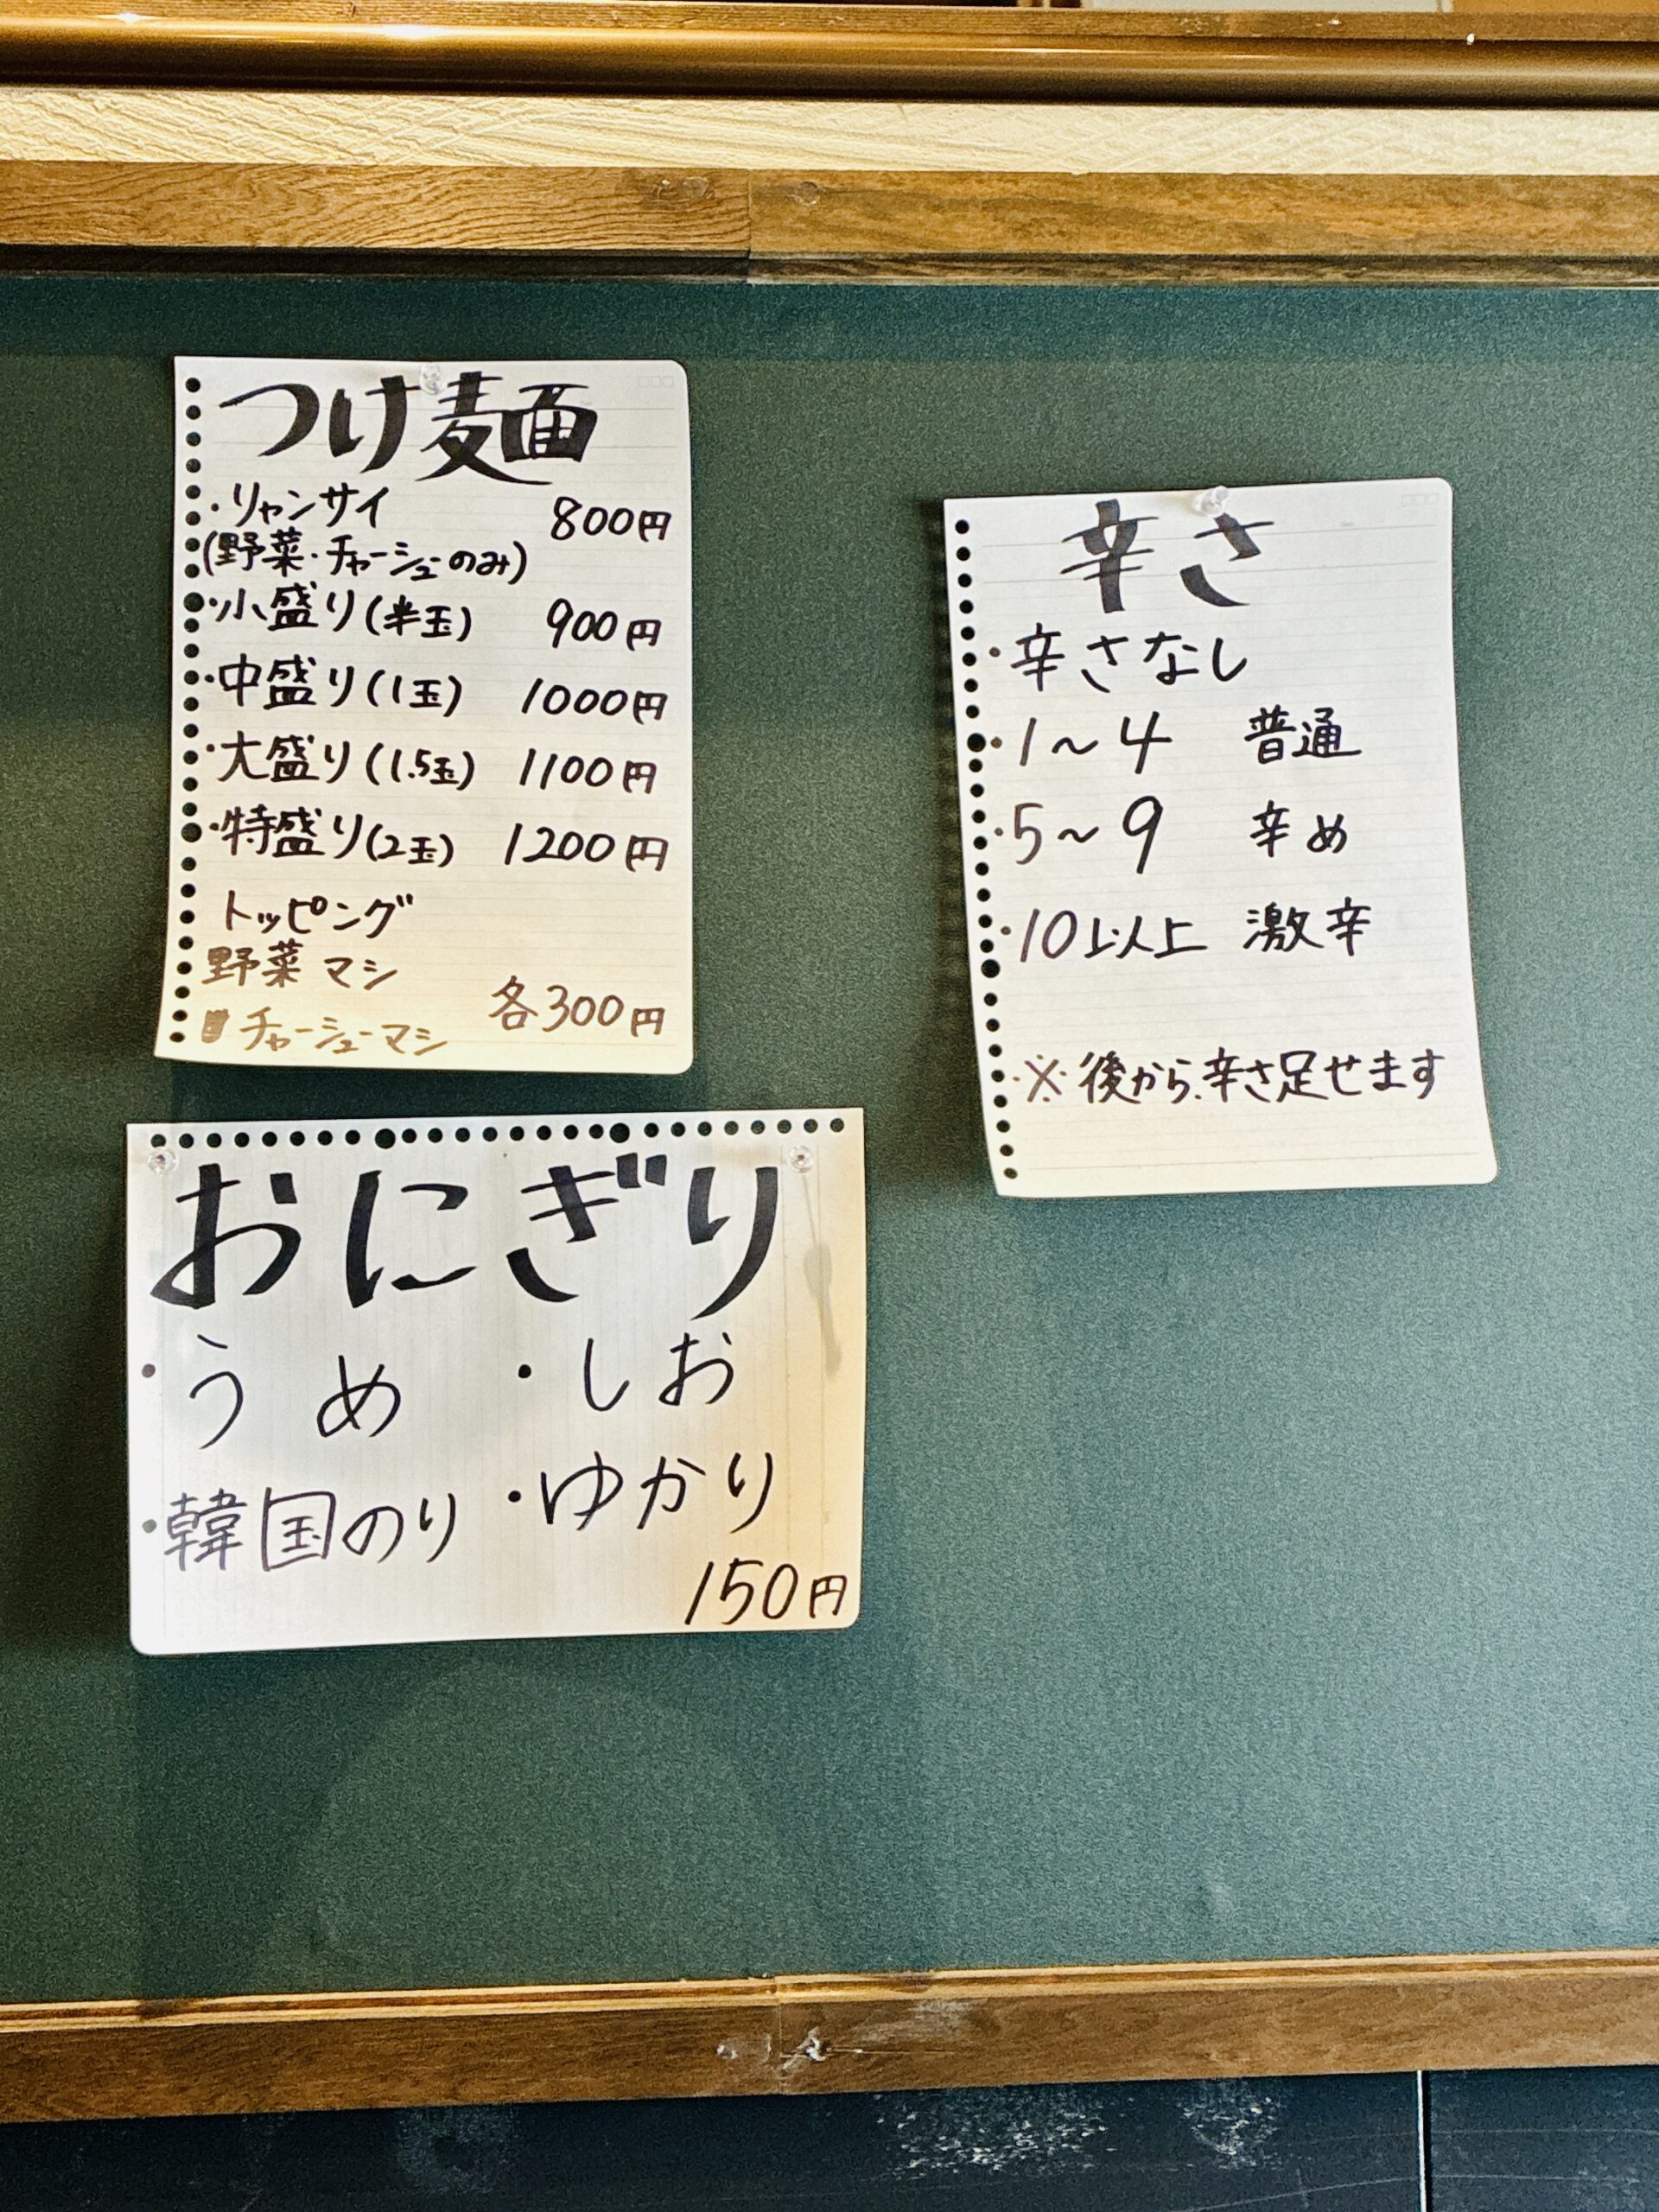 つけ麺
・リャンサイ 800円
(野菜・チャーシューのみ)
・小盛り(半玉) 900円
・中盛り(1玉) 1000円
・大盛り(1.5玉) 1100円
・特盛り(2玉) 1200円
トッピング
野菜マシ
チャーシューマシ 各300円
おにぎり
・うめ ・しお
・韓国のり ・ゆかり
150円
辛さ
・辛さなし
・1～4 普通
・5～9 辛め
・10以上 激辛
※後から辛さ足せます